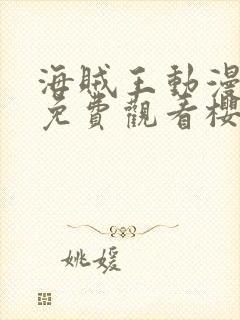 海賊王動漫
免費觀看櫻
姚媛